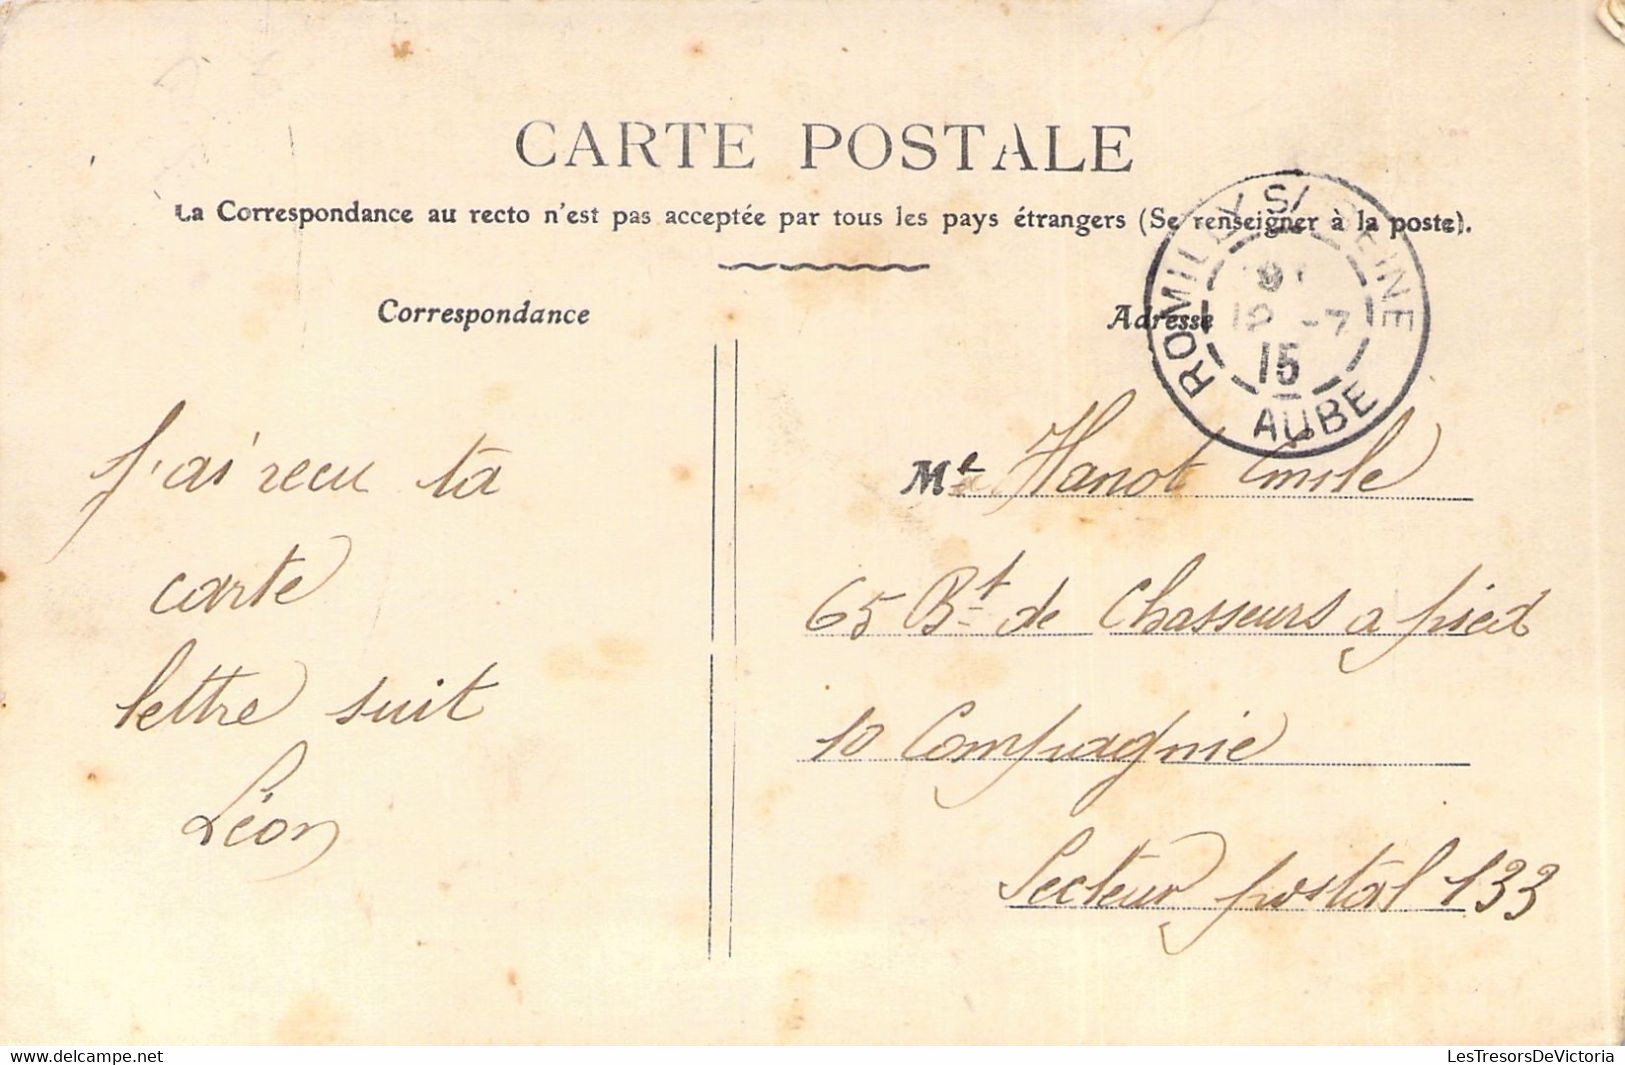 CARTE POSTALE
La Correspondance au recto n'est pas acceptée par tous les pays étrangers (Se renseigner à la poste).
Correspondance
J'ai recu ta
carte
lettre suit
Léon
Adresse
ROMILLY S/ SEINE
12 -7
15
AUBE
Mr Hanot Emile
65 Bt de Chasseurs a pied
10 Compagnie
Secteur postal 133
delcampe.net
LesTresorsDeVictoria